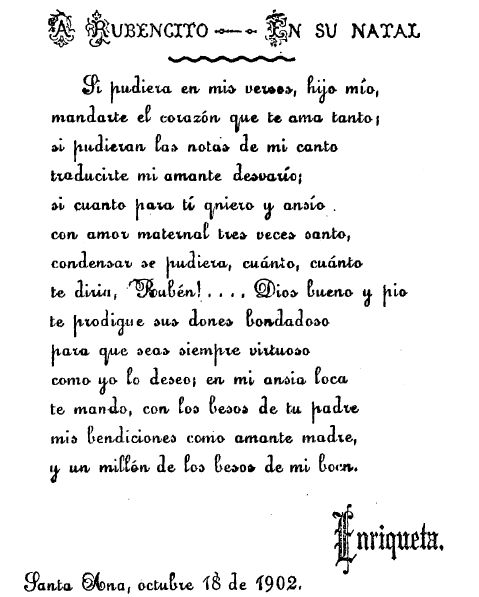 A RUBENCITO — EN SU NATAL
Si pudiera en mis versos, hijo mío,
mandarte el corazón que te ama tanto;
si pudieran las notas de mi canto
traducirte mi amante desvarío;
si cuanto para tí qniero y ansío.
con amor maternal tres veces santo,
condensar se pudiera, cuánto, cuánto
te diria, Rubén!.... Dios bueno y pio
te prodigue sus dones bondadoso
para que seas siempre virtuoso
como yo lo deseo; en mi ansia loca
te mando, con los besos de tu padre
mis bendiciones como amante madre,
y un millón de los besos de mi bocn.
Enriqueta.
Santa Ana, octubre 18 de 1902.